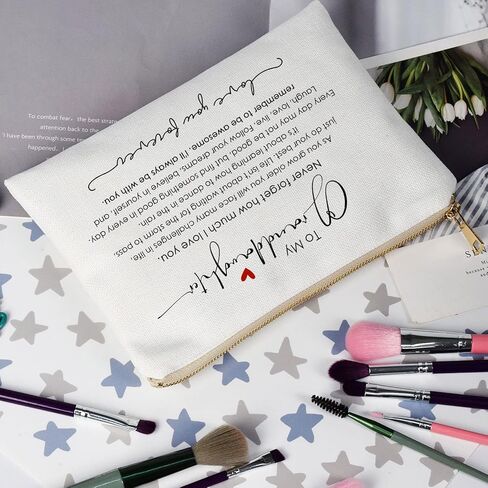 To combat fear, the best strat
TO MY
Granddaughter
Never forget how much I love you.
As you grow older you will face many challenges in life,
just do your best. Life isn't about waiting for the storm to pass,
it's about learning how to dance in the rain.
Every day may not be good, but find something good in every day.
Laugh, love, live, follow your dreams, believe in yourself, and
remember to be awesome. I'll always be with you.
love you forever
Because